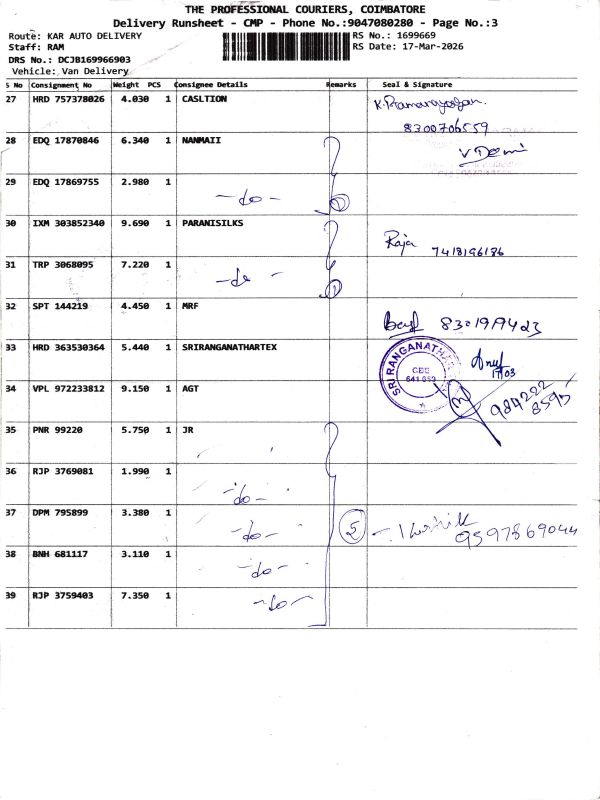 THE PROFESSIONAL COURIERS, COIMBATORE
Delivery Runsheet - CMP - Phone No.:9047080280 - Page No.:3
Route: KAR AUTO DELIVERY
Staff: RAM
DRS No.: DCJB169966903
Vehicle: Van Delivery
RS No.: 1699669
RS Date: 17-Mar-2026
S No Consignment No Weight PCS Consignee Details Remarks Seal & Signature
27 HRD 757378026 4.030 1 CASLTION
8300706559
28 EDQ 17870846 6.340 1 NANMAII
29 EDQ 17869755 2.980 1 -do-
30 IXM 303852340 9.690 1 PARANISILKS
Raja 7418196186
31 TRP 3068095 7.220 1 -do-
32 SPT 144219 4.450 1 MRF
33 HRD 363530364 5.440 1 SRIRANGANATHARTEX
SRI RANGANATHAR
CBE
641 653
17/03
34 VPL 972233812 9.150 1 AGT
984222
8595
35 PNR 99220 5.750 1 JR
36 RJP 3769081 1.990 1 -do-
37 DPM 795899 3.380 1 -do- 5
9597869044
38 BNH 681117 3.110 1 -do-
39 RJP 3759403 7.350 1 -do-